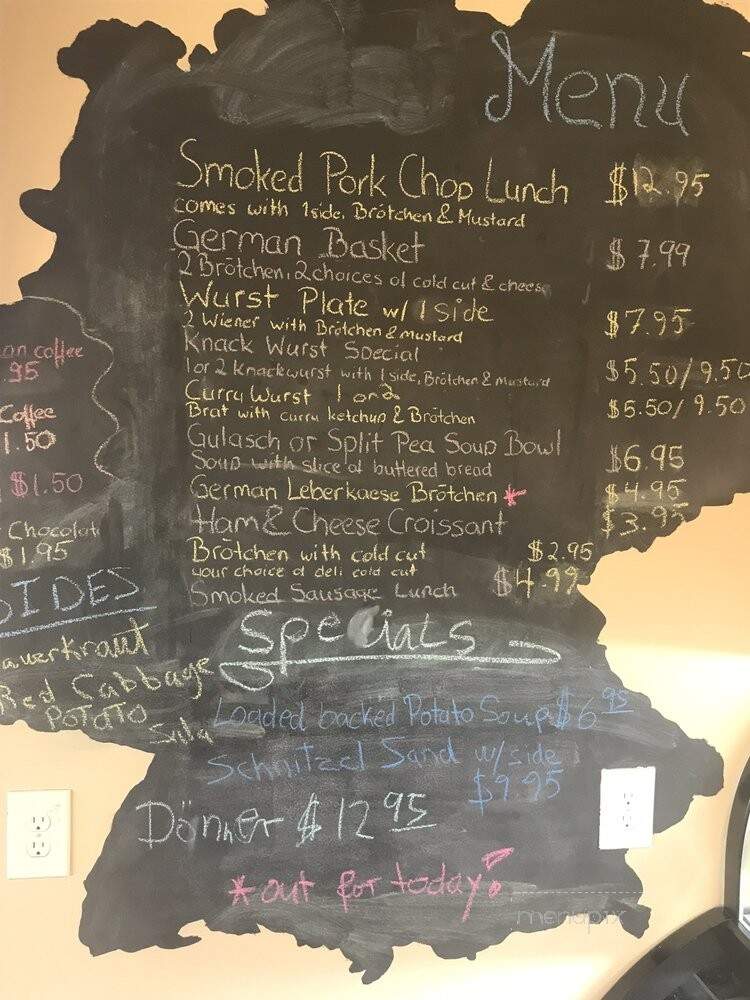 Menu
Smoked Pork Chop Lunch $12.95
comes with 1side, Brötchen & Mustard
German Basket $7.99
2 Brötchen, 2 choices of cold cut & chees
Wurst Plate w/ 1 side $7.95
2 Wiener with Brötchen & Mustard
Knack Wurst Special
1 or 2 Knackwurst with 1 side, Brötchen & Mustard $5.50/9.50
Curry Wurst 1 or 2 $5.50/9.50
Brat with curry ketchup & Brötchen
Gulasch or Split Pea Soup Bowl $6.95
Soup with slice of buttered bread
German Leberkaese Brötchen * $4.95
Ham & Cheese Croissant $3.95
Brötchen with cold cut $2.95
your choice of deli cold cut
Smoked Sausage Lunch $4.99
an coffee
95
Coffee
1.50
$1.50
Chocolat
$1.95
SIDES
auerkraut
Red Cabbage
Potato Sala
Specials
Loaded backed Potato Soup $6 95
Schnitzel Sand w/side
$9.95
Dönner $12 95
* out for today!
menupix